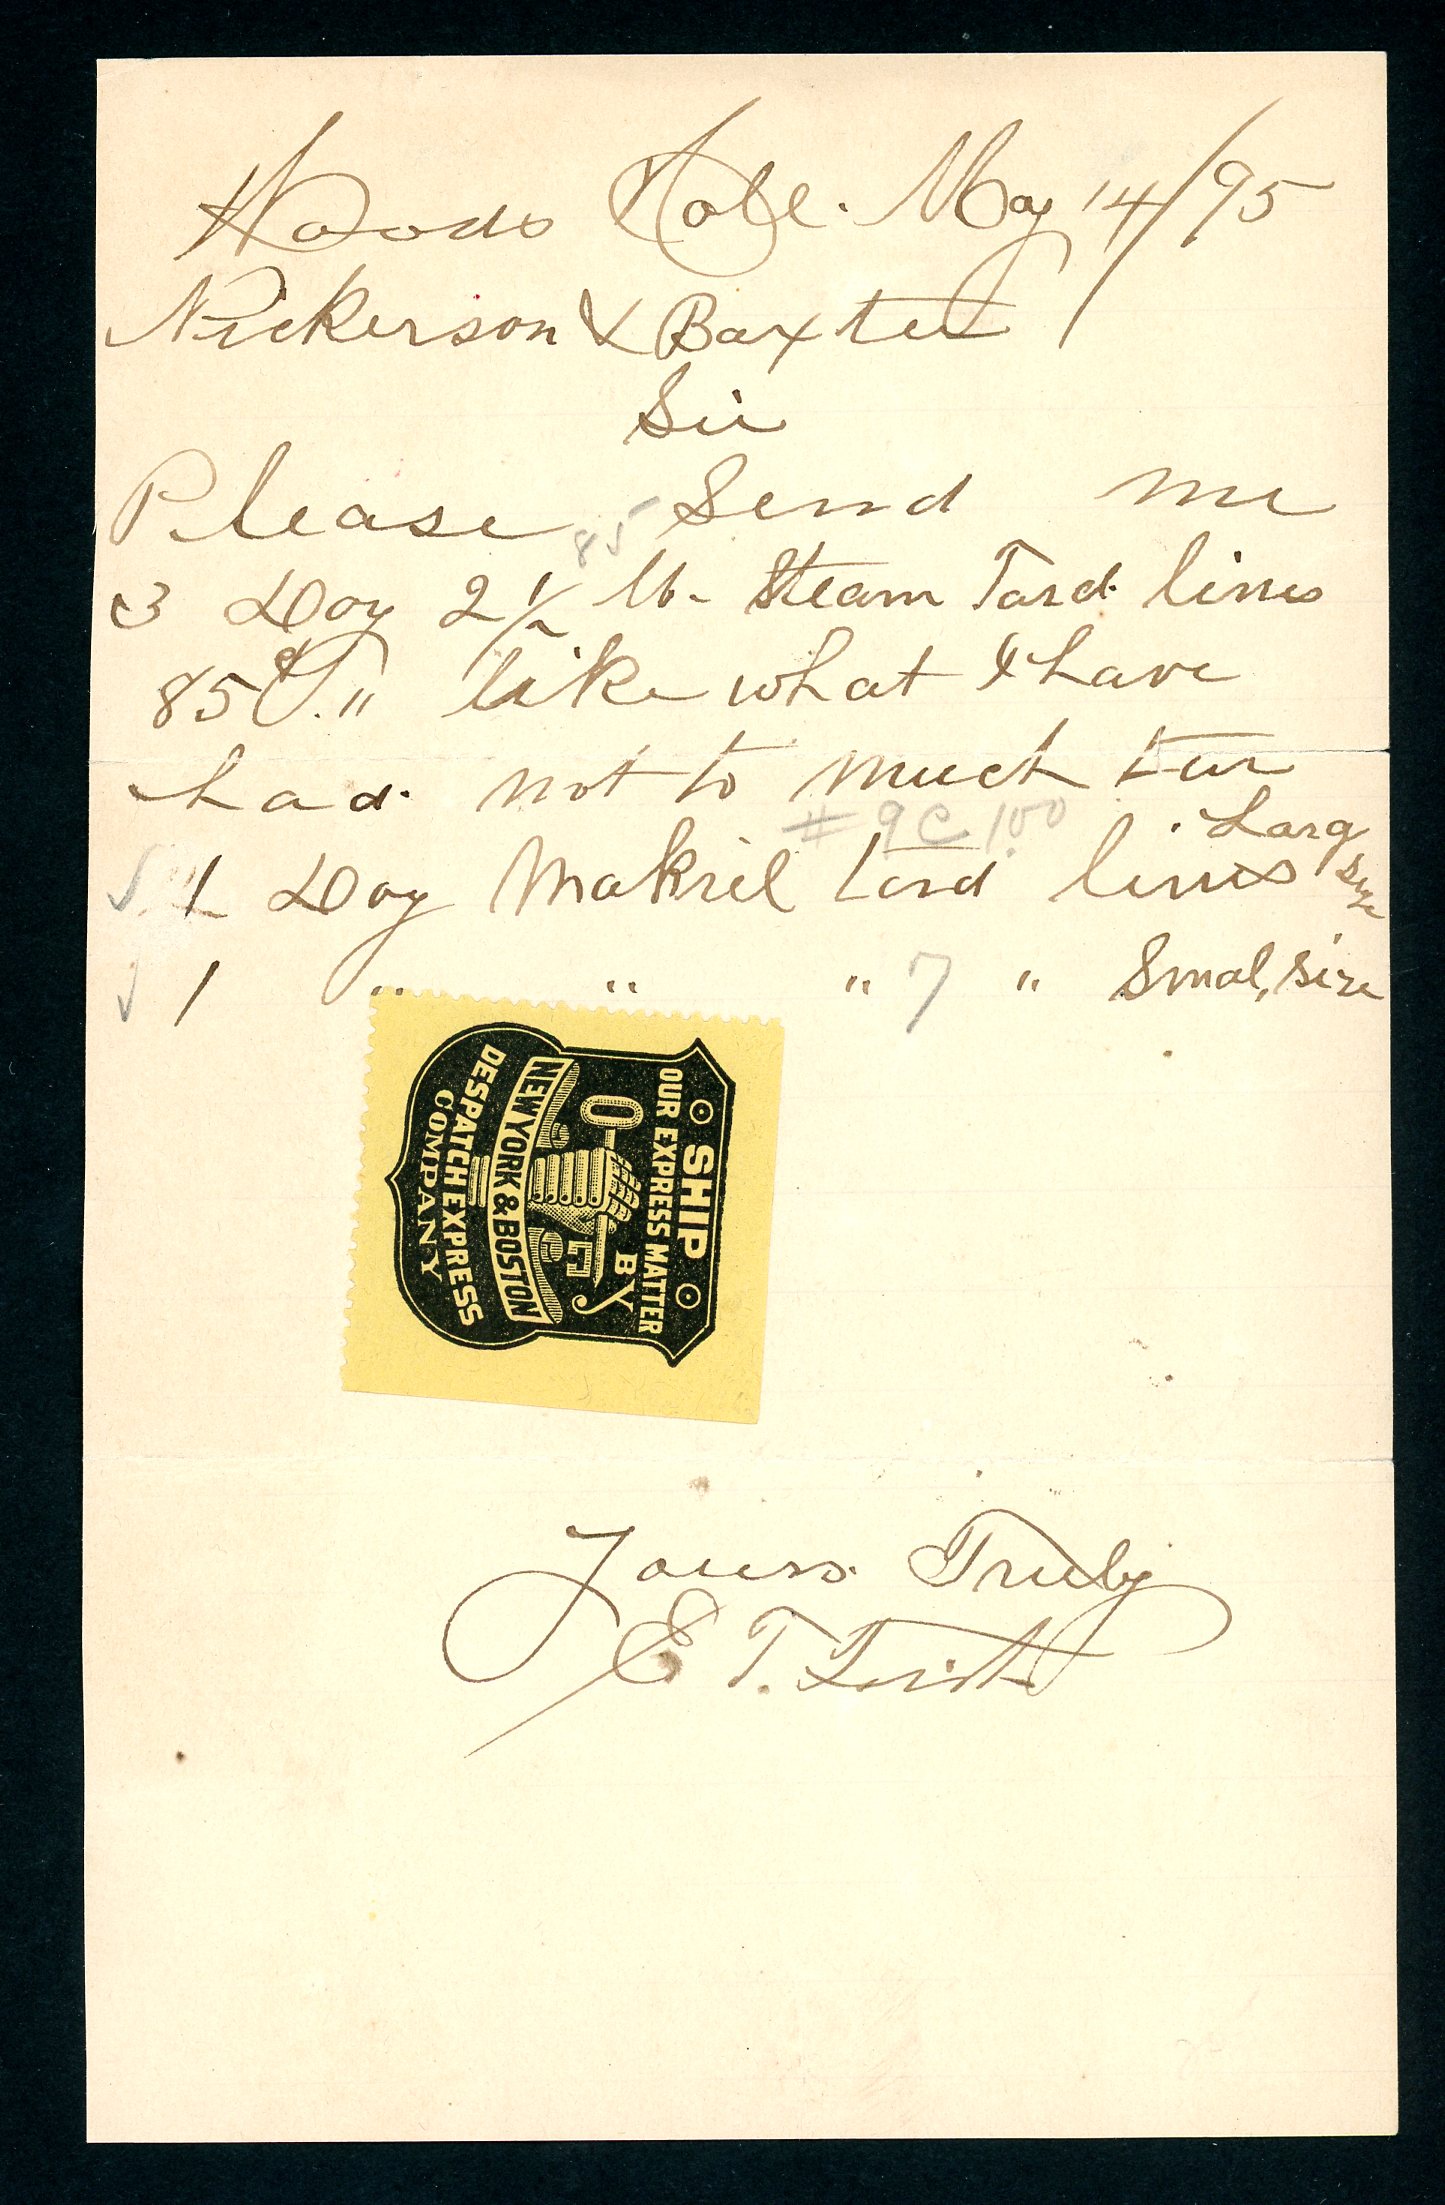 Woods Hole. May 14/95
Nickerson & Baxter
Sir
Please Send me
85
3 Doz 2 1/2 lb. Steam Tard. lines
85 " like what I have
had. not to much tar
# 9 C 1.00
√ 1 Doz Makril tard lines Larg size
√ 1 " " " 7 " Smal, size
SHIP
OUR EXPRESS MATTER
BY
NEW YORK & BOSTON
DESPATCH EXPRESS
COMPANY
Yours. Truly
E T.